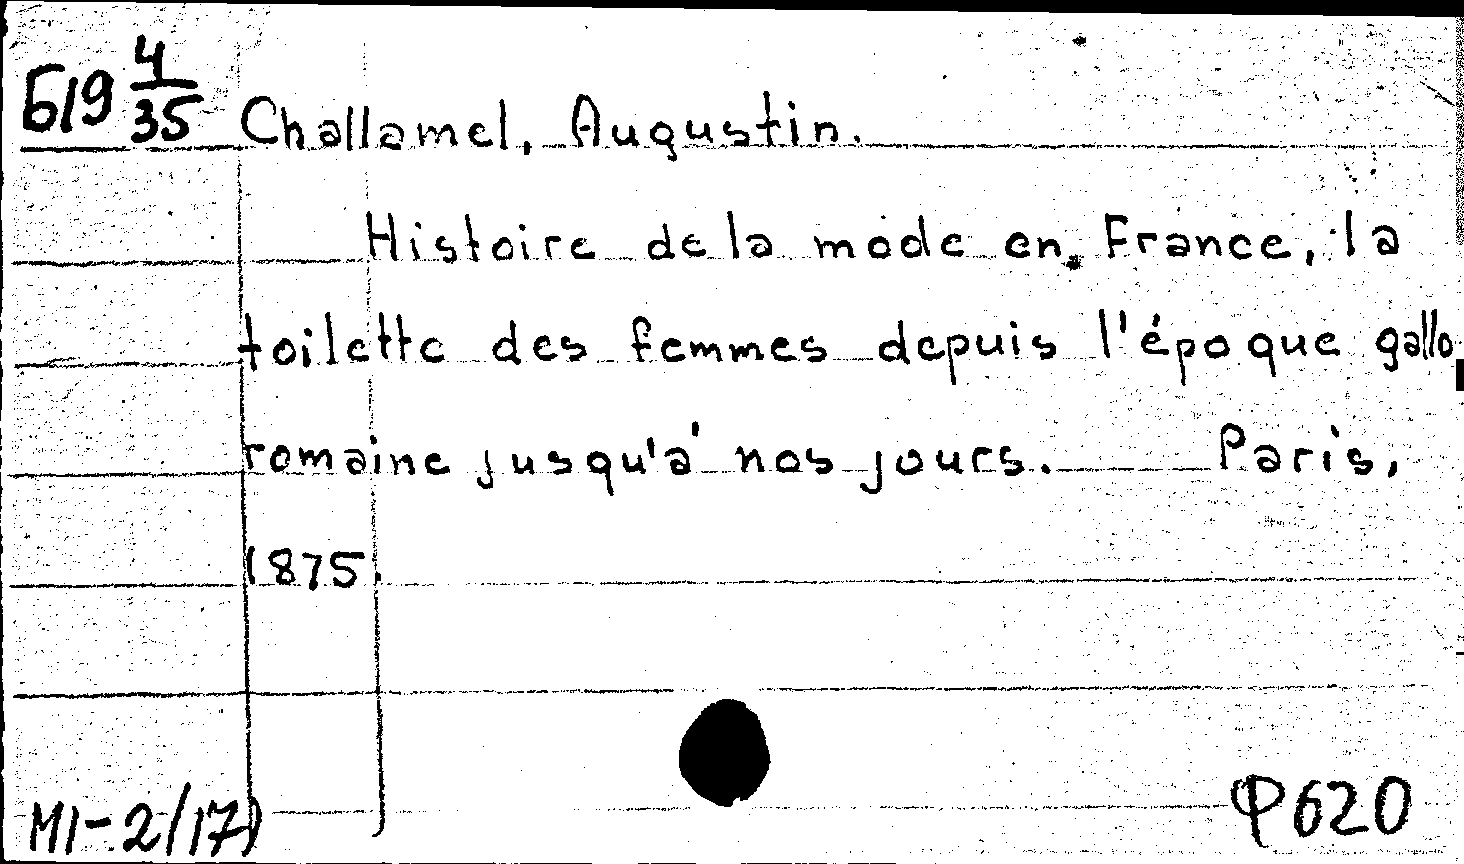 Б19 4/35
Challamel, Augustin.
Histoire de la mode en France, la
toilette des femmes depuis l'époque gallo
romaine jusqu'á nos jours. Paris,
1875.
MI-2/17)
Ф620